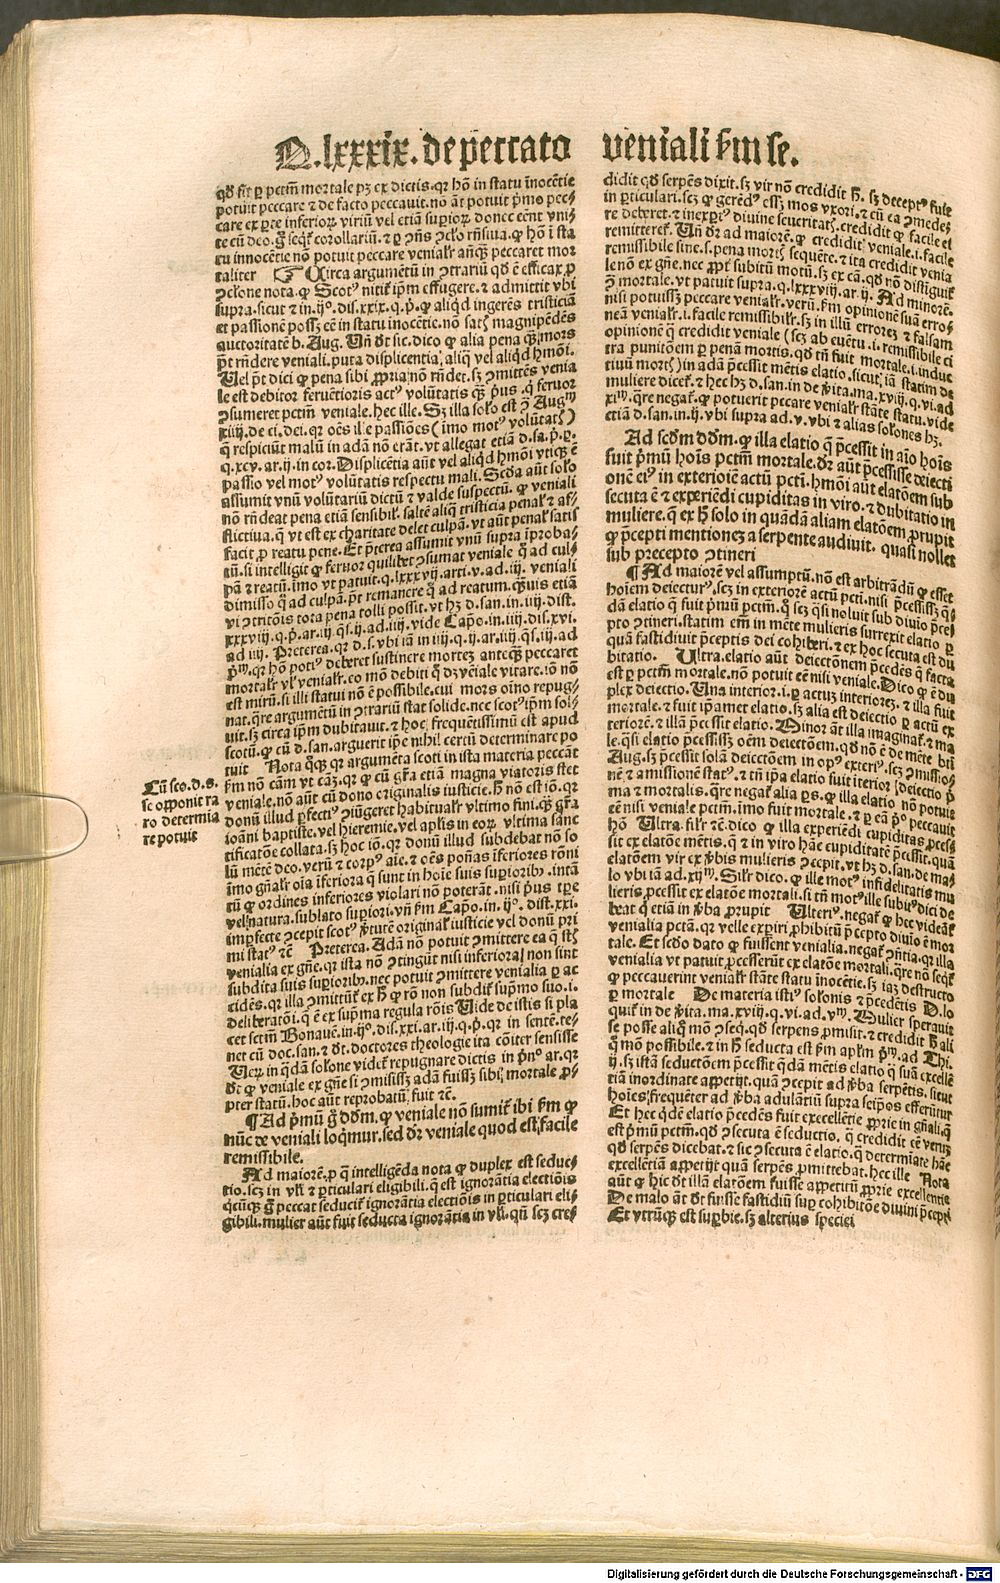 Q. lxxxix. de peccato veniali ẜm se.
qd̄ fit ꝑ pctm̄ mortale pꝫ ex dictis. qꝛ hō in statu īnocētie
potuit peccare ⁊ de facto peccauit. nō āt potuit p̄mo pec⸗
care ex ꝑte inferioꝝ viriū vel etiā suꝑioꝝ donec eēnt vni⸗
te cū deo.
tu innocētie nō potuit peccare venialr̄ anq̄ꝫ peccaret mor
taliter ☞ Circa argumētū in ↄtrariū qd̄ ē efficax ꝓ
ↄclōne nota. ꝙ Scotꝰ nitit̄ ip̄m effugere. ⁊ admittit vbi
supra. sicut ⁊ in. ijº. dis. xxix. q. p̄. ꝙ aliqd̄ ingerēs tristiciā
et passionē possꝫ eē in statu inocētie. nō satꝭ magnipēdēs
auctoritatē b. Aug. Un̄ dr̄ sic. dico ꝙ alia pena q̄ꝫ mors
p̄t rn̄dere veniali. puta displicentia, aliq̄ vel aliqd̄ hmōi.
Uel p̄t dici ꝙ pena sibi ꝓpria nō rn̄det. sꝫ ↄmittēs venia
le est debitor feruētioris actꝰ volūtatis q̄ꝫ p̄us. q̄ feruor
ↄsumeret pctm̄ veniale. hec ille. Sꝫ illa solº est ↄ̄ Augᵐ
xiiij. de ci. dei. qꝛ oēs ille passiōes (imo motꝰ volūtatꝭ)
q̄ respiciūt malū in adā nō erāt. vt allegat etiā d. sa. p̄. p̄.
q. xcv. ar. ij. in cor. Displicētia aūt vel aliqd̄ hmōi vtiqꝫ ē
passio vel motꝰ volūtatis respectu mali. Scd̄a aūt solº
assumit vnū volūtariū dictū ⁊ valde suspectū. ꝙ veniali
nō rn̄deat pena etiā sensibilꝭ. saltē aliq̄ tristicia penalꝭ ⁊ af⸗
flictiua. q̄ vt est ex charitate delet culpā. vt aūt penalꝭ satis
facit ꝓ reatu pene. Et p̄terea assumit vnū supra īproba⸗
tū. si intelligit ꝙ feruor quilibet ↄsumat veniale q̄ ad cul⸗
pā ⁊ reatū. imo vt patuit. q. lxxxvij. arti. v. ad. iij. veniali
dimisso q̄ ad culpā. p̄t remanere q̄ ad reatum. q̄uis etiā
vi ↄtritōis tota pena tolli possit. vt hꝫ d. san. in. iiij. dist.
xxxviij. q. p̄. ar. iij. qs̄. ij. ad. iiij. vide Capº. in. iiij. dis. xvi.
ad iiij. Preterea. qꝛ d. s. vbi iā in iiij. q. ij. ar. iiij. qs̄. iij. ad
p̄ᵐ. qꝛ hō potiꝰ deberet sustinere mortēꝫ anteq̄ꝫ peccaret
mortalr̄ vl̓ venialr̄. eo mō debiti q̄ dꝫ vēiale vitare. iō nō
est mirū. si illi statui nō ē possibile. cui mors oīno repug⸗
nat. q̄re argumētū in ↄtrariū stat solide. nec scotꝰ ip̄m sol⸗
uit. sꝫ circa ip̄m dubitauit. ⁊ hoc frequētissimū est apud
scotū. ꝙ cū d. san. arguerit ip̄e nihil certū determinare po
tuit Nota q̄ꝫ qꝛ argumēta scoti in ista materia peccāt
ẜm nō cām vt cāꝫ. qꝛ ꝙ cū gr̄a etiā magna viatoris stet
veniale. nō aūt cū dono originalis iusticie. H̄ nō est iō. qꝛ
donū illud ꝑfectiꝰ ↄiūgeret habitualr̄ vltimo fini. q̄ꝫ gr̄a
ioāni baptiste. vel hieremie. vel aplīs in eoꝝ vltima sanc
tificatōe collata. sꝫ hoc iō. qꝛ donū illud subdebat nō so
lū mētē deo. verū ⁊ corpꝰ aīe. ⁊ oēs poñas īferiores rōni
īmo gn̄alr̄ oīa īferiora q̄ sunt in hoīe suis suꝑioribꝰ. intā
tū ꝙ ordines inferiores violari nō poterāt. nisi p̄us ipe
vel natura. sublato suꝑiori. vn̄ ẜm Capº. in. ijº. dist. xxi.
imꝑfecte ↄcepit scotꝰ ꝟtutē originalꝭ iusticie vel donū pri
mi statꝰ ⁊c̄ Preterea. Adā nō potuit ↄmittere ea q̄ st̄
venialia ex gn̄e. qꝛ ista nō ↄtingūt nisi inferiora nō sint
subdita suis suꝑioribꝰ. nec potuit ↄmittere venialia ꝑ ac
cidēs. qꝛ illa ↄmittūt̄ ex H̄ ꝙ rō non subdit̄ sup̄mo suo. i.
deliberatōi. q̄ ē ex sup̄ma regula rōis Uide de istis si pla
cet sctm̄ Bonauē. in. ijº. dis. xxi. ar. iij. q. p̄. qꝛ in sentē. te⸗
net cū doc. san. ⁊ dr̄. doctores theologie ita cōiter sensisse
Ueꝝ in q̄dā solone videt̄ repugnare dictis in p̄nº ar. qꝛ
dr̄ ꝙ veniale ex gn̄e si ↄmisissꝫ adā fuissꝫ sibi, mortale ꝓ⸗
pter statū. hoc aūt reprobatū, fuit ⁊c̄.
¶ Ad p̄mū g̊ dōm. ꝙ veniale nō sumit̄ ibi ẜm ꝙ
nūc de veniali loq̄mur. sed dr̄ veniale quod est, facile
remissibile.
Ad maiorē. ꝓ q̄ intelligēda nota ꝙ duplex est seduc⸗
tio. scꝫ in vl̓i ⁊ ꝑticulari eligibili. q̄ est ignorātia electiōis
q̄cūqꝫ g̊ peccat seducit̄ ignorātia electiōis in ꝑticulari eli⸗
gibili. mulier aūt fuit seducta ignorātia in vl̓i. qn̄ scꝫ cre⸗
Cū sco. d. s.
se opponit ra
ro determia
re potuit
didit qd̄ serpēs dixit. sꝫ vir nō credidit H̄. sꝫ deceptꝰ fuit
in ꝑticulari. scꝫ ꝙ gerēdꝰ essꝫ mos vxori. ⁊ cū ea ↄmedeꝫ
re deberet. ⁊ inexꝑtꝰ diuine seueritatꝭ. credidit ꝙ facile ei
remitteret̄. Un̄ dr̄ ad maiorē. ꝙ credidit veniale. i. facile
remissibile sine. s. pena mortꝭ sequēte. ⁊ ita credidit venia
le nō ex gn̄e. nec ꝓpt̄ subitū motū. sꝫ ex cā. qd̄ nō distiguit̄
ↄ̄ mortale. vt patuit supra. q. lxxxviij. ar. ij. Ad minorē.
nisi potuissꝫ peccare venialr̄. verū ẜm opinionē suā erro⸗
neā venialr̄. i. facile remissibilr̄. sꝫ in illū errorēꝫ ⁊ falsam
opinionē q̄ credidit veniale (scꝫ ab euētu. i. remissibile ci
tra punitōem ꝑ penā mortis. qd̄ tn̄ fuit mortale. i. induc
tiuū mortꝭ) in adā p̄cessit mētis elatio. sicut, iā statim de
muliere dicet̄. ⁊ hec hꝫ d. san. in de ꝟita. ma. xviij. q. vi. ad
xiᵐ. q̄re negat̄. ꝙ potuerit pecare venialr̄ stāte statu. vide
etiā d. san. in. ij. vbi supra ad. v. vbi ⁊ alias solones hꝫ.
Ad scd̄m dōm. ꝙ illa elatio q̄ p̄cessit in aīo hoīs
fuit p̄mū hoīs pctm̄ mortale. dr̄ aūt p̄cessisse deiecti
onē eiꝰ in exteriorē actū pctī. hmōi aūt elatōem sub
secuta ē ⁊ experiēdi cupiditas in viro. ⁊ dubitatio in
muliere. q̄ ex H̄ solo in quādā aliam elatōem ꝓrupit
ꝙ p̄cepti mentionēꝫ a serpente audiuit. quasi nollet
sub precepto ↄtineri
¶ Ad maiorē vel assumptū. nō est arbitrādū ꝙ esset
hoīem deiecturꝰ. scꝫ in exteriorē actū pctī. nisi p̄cessissꝫ q̄⸗
dā elatio q̄ fuit p̄mū pctm̄. q̄ scꝫ q̄si noluit sub diuīo p̄cep
pto ↄtineri. statim em̄ in mēte mulieris surrexit elatio q̄
quā fastidiuit p̄ceptis dei cohiberi. ⁊ ex hoc secuta est du
bitatio. Ultra. elatio aūt deiectōnem p̄cedēs q̄ facta
est ꝑ pctm̄ mortale. nō potuit eē nisi veniale. Dico ꝙ ē du
plex deiectio. Una interior. i. ꝑ actuꝫ interiorēꝫ. ⁊ illa fuit
mortale. ⁊ fuit ip̄amet elatio. sꝫ alia est deiectio ꝑ actū ex
teriorē. ⁊ illā p̄cessit elatio. Minor āt illa imaginat̄. ⁊ ma
le. q̄si elatio p̄cessissꝫ oēm deiectōem. qd̄ nō ē de mēte bti
Aug. sꝫ p̄cessit solā deiectōem in opꝰ exteriꝰ. scꝫ ↄmissio⸗
nē ⁊ amissionē statꝰ. ⁊ tn̄ ip̄a elatio fuit īterior deiectio p̄
ma ⁊ mortalis. q̄re negat̄ alia ꝑs. ꝙ illa elatio nō potuit
eē nisi veniale pctm̄. imo fuit mortale. ⁊ ꝑ eā p̄º peccauit
hō Ultra. silr̄ ⁊c̄. dico ꝙ illa experiēdi cupiditas ꝓces⸗
sit ex elatōe mētis. q̄ ⁊ in viro hāc cupiditatē p̄cessit. quā
elatōem vir ex ꝟbis mulieris ↄcepit. vt hꝫ d. san. de ma⸗
lo vbi iā ad. xijᵐ. Silr̄ dico. ꝙ ille motꝰ infidelitatis mu
lieris ꝓcessit ex elatōe mortali. si tn̄ motꝰ ille subitꝰ dici de
beat q̄ etiā in ꝟba ꝓrupit Ulteriꝰ. negat̄ ꝙ hec videāt̄
venialia pctā. qꝛ velle exꝑiri ꝓhibitū p̄cepto diuīo ē mor
tale. Et scd̄o dato ꝙ fuissent venialia. negat̄ ↄn̄tia. qꝛ illa
venialia vt patuit ꝓcesserūt ex elatōe mortali. q̄re nō seq̄t̄
ꝙ peccauerint venialr̄ stāte statu īnocētie. sꝫ iaꝫ destructo
ꝑ mortale De materia istiꝰ solonis ⁊ p̄cedētis D. lo
quit̄ in de ꝟita. ma. xviij. q. vi. ad. vᵐ. Mulier sperauit
se posse aliq̄ mō ↄseq̄. qd̄ serpens ꝓmisit. ⁊ credidit H̄ ali
q̄ mō possibile. ⁊ in H̄ seducta est ẜm aplm̄ p̄ᵐ. ad Thi.
ij. sꝫ istā seductōem p̄cessit q̄dā mētis elatio q̄ suā excellē
tiā inordinate appetijt. quā ↄcepit ad ꝟba serpētis. sicut
hoīes frequēter ad ꝟba adulātiū supra seip̄os efferūtur
Et hec q̄dē elatio p̄cedēs fuit excellētie ꝓprie in gn̄ali. q̄
est p̄mū pctm̄. qd̄ ↄsecuta ē seductio. q̄ credidit eē verūꝫ
qd̄ serpēs dicebat. ⁊ sic ↄsecuta ē elatio. q̄ determīate hāc
excellētiā appetijt quā serpēs ꝓmittebat. hec ille Nota
aūt ꝙ hic dr̄ illā elatōem fuisse appetitū ꝓprie excellentie
De malo āt dr̄ fuisse fastidiū suꝑ cohibitōe diuini p̄cepti
Et vtrūqꝫ est suꝑbie. sꝫ alterius speciei
Digitalisierung gefördert durch die Deutsche Forschungsgemeinschaft - DFG